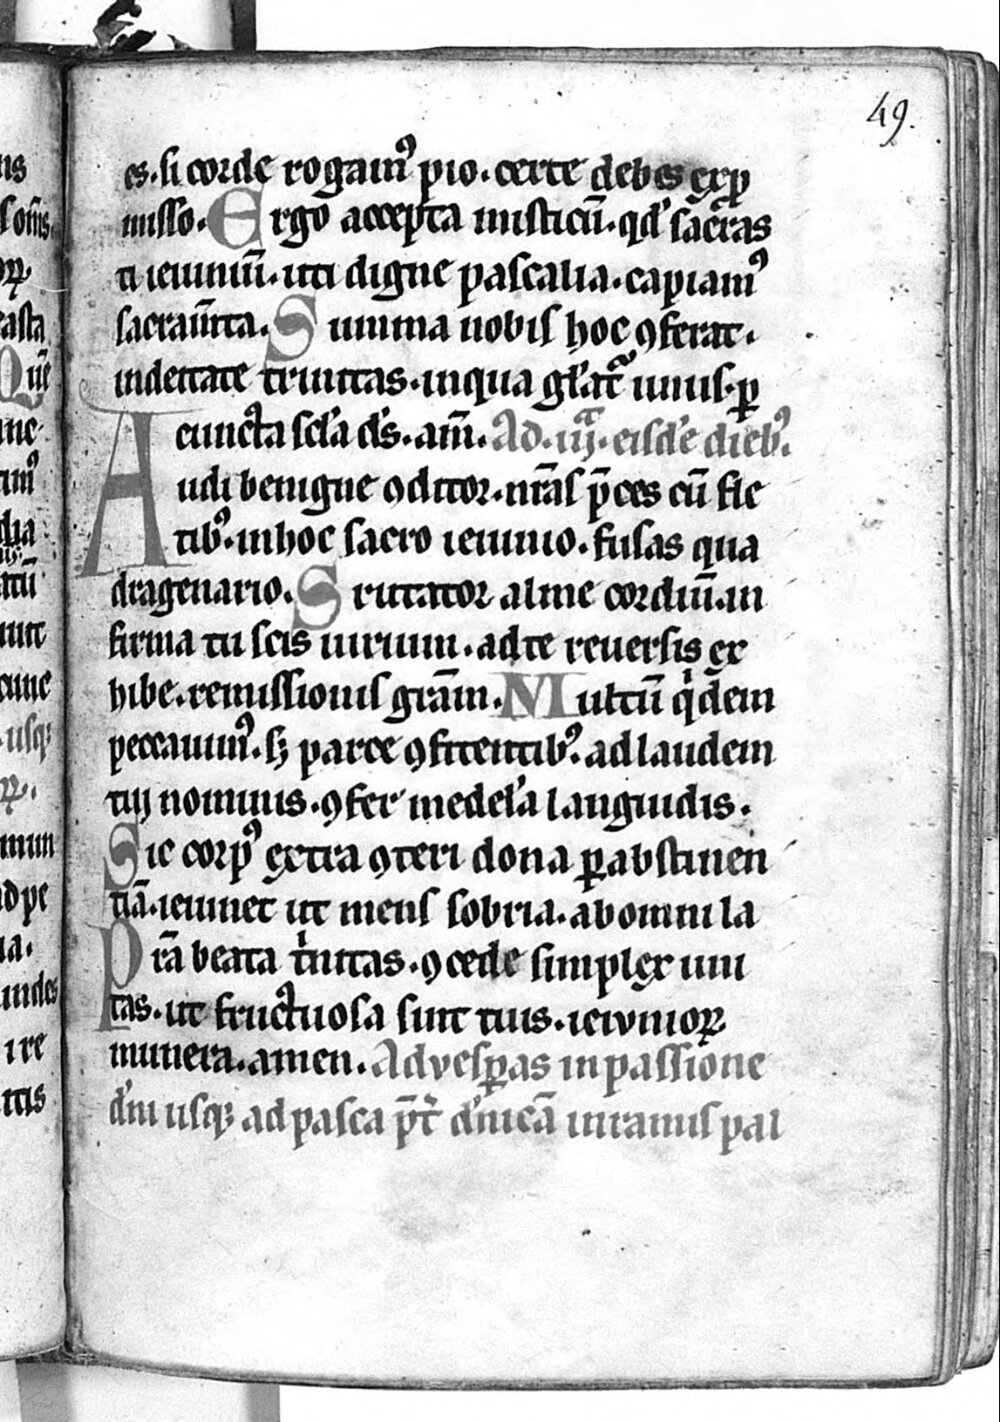 49.
es. si corde rogam⁹ pio. certe debes exp
misso. Ergo accepta misticū. qd' sacras
ti ieiuniū. uti digne pascalia. capiam⁹
sacram̄ta. Summa uobis hoc ꝯferat.
indeitate trinitas. inqua gl'at' unus. ꝑ
cuncta scl'a d's. am̄. Ad .iij. eisdē dieb⁹.
Audi benigne ꝯditor. nr̄as p̄ces cū fle
tib⁹. inhoc sacro ieiunio. fusas qua
dragenario. Scrutator alme cordiū. in
firma tu scis uirium. ad te reuersis ex
hibe. remissionis grām. Multū qͥdem
peccauim⁹. sꝫ parce ꝯfitentib⁹. ad laudem
tui nominis. ꝯfer medel'a languidis.
Sic corp⁹ extra ꝯteri dona ꝑ abstinen
tiā. ieiunet ut mens sobria. ab omni la
Prā beata tͥnitas. ꝯcede simplex uni
tas. ut fructuosa sint tuis. ieiunioꝝ
munera. amen. Ad vesꝑas in passione
d'ni usqꝫ ad pasca p̄t' d'nicā in ramis pal